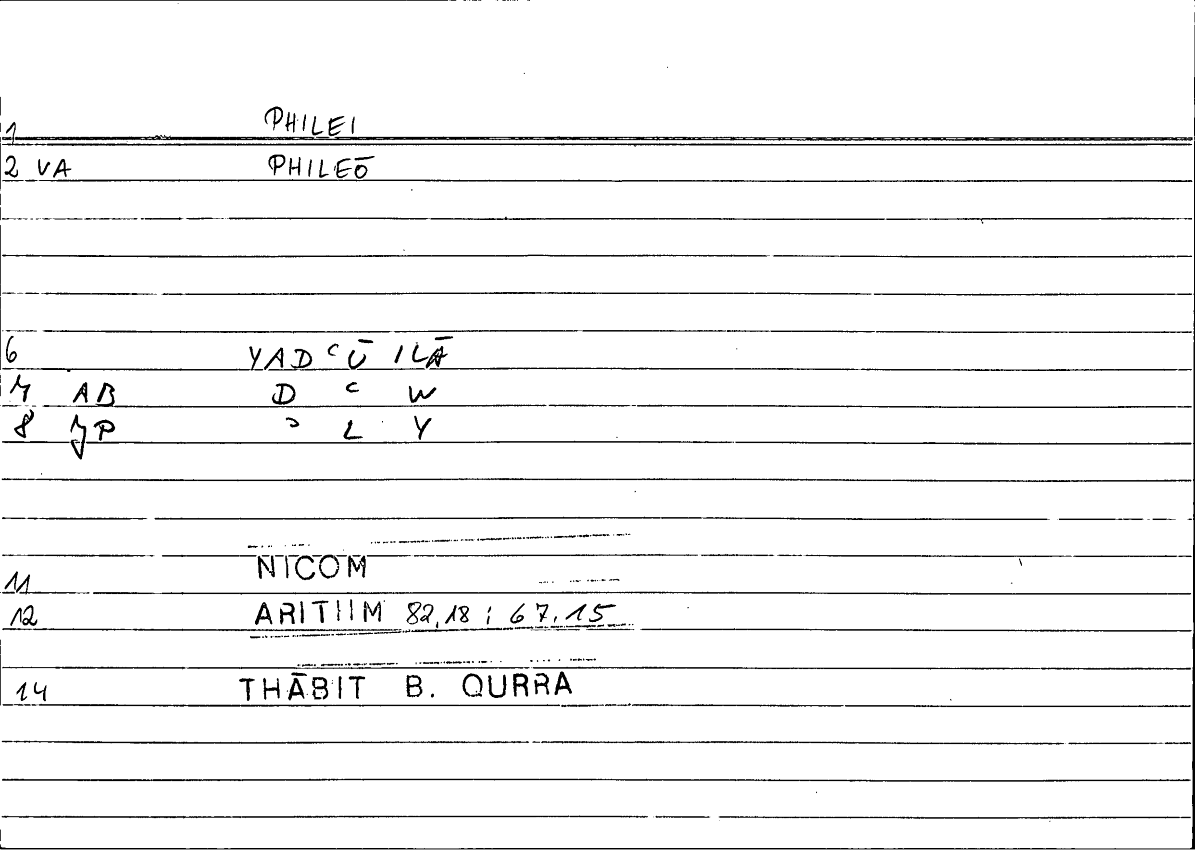 1 PHILEI
2 VA PHILEŌ
6 YAD ʿ Ū ILĀ
7 AB D ʿ W
8 JP ʾ L Y
11 NICOM
12 ARITHM 82,18 ; 67.15
14 THĀBIT B. QURRA